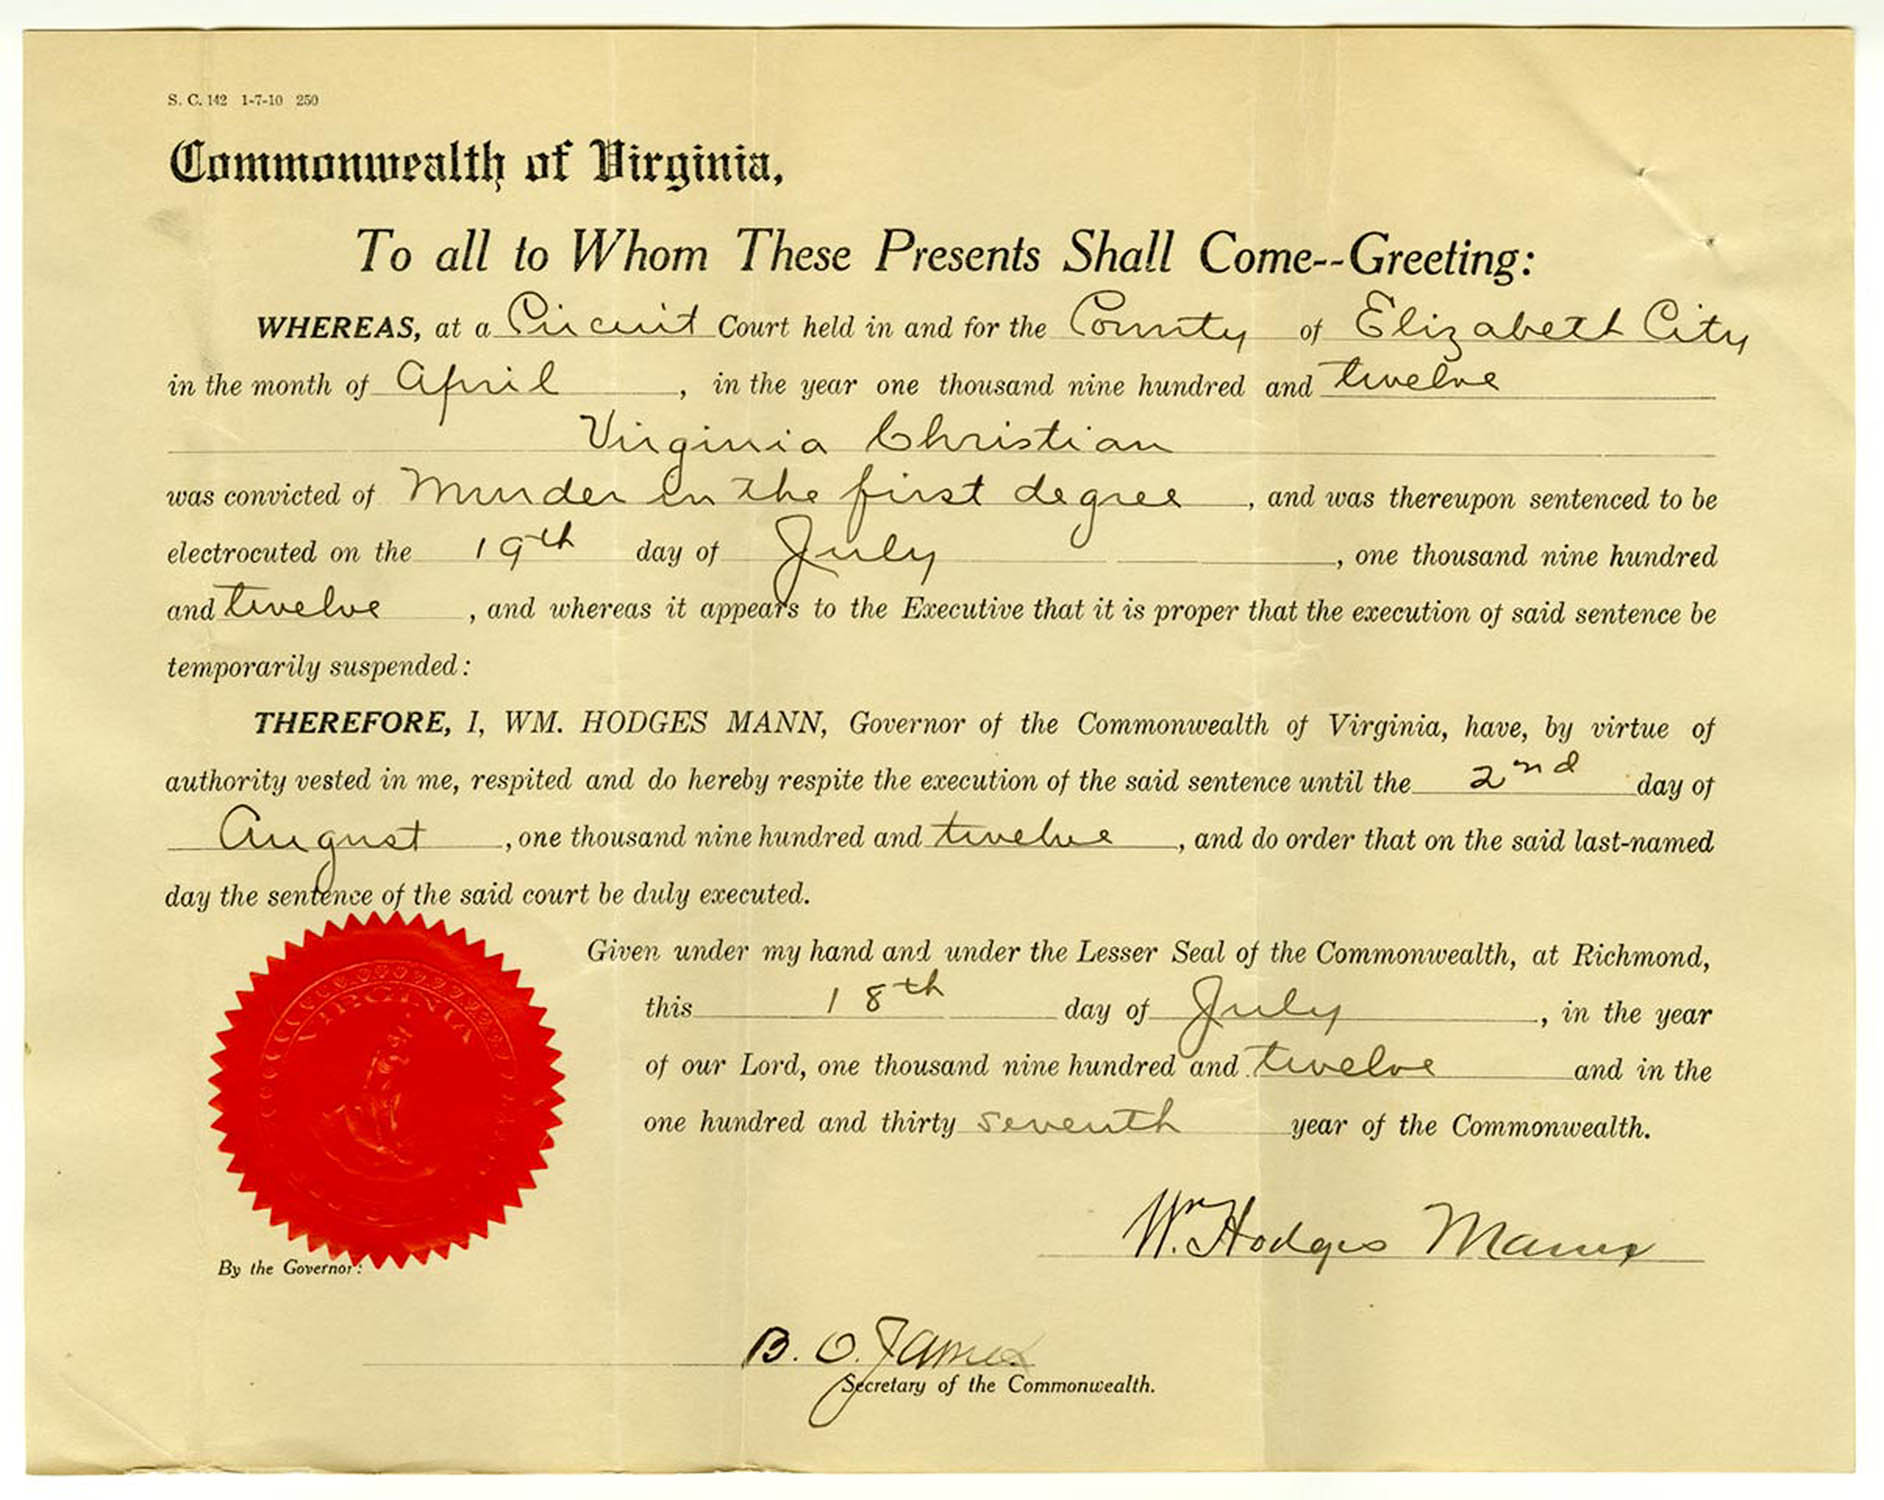 S. C. 142 1-7-10 250
Commonwealth of Virginia,
To all to Whom These Presents Shall Come--Greeting:
WHEREAS, at a Circuit Court held in and for the County of Elizabeth City
in the month of April , in the year one thousand nine hundred and twelve
Virginia Christian
was convicted of Murder in the first degree , and was thereupon sentenced to be
electrocuted on the 19th day of July , one thousand nine hundred
and twelve , and whereas it appears to the Executive that it is proper that the execution of said sentence be
temporarily suspended:
THEREFORE, I, WM. HODGES MANN, Governor of the Commonwealth of Virginia, have, by virtue of
authority vested in me, respited and do hereby respite the execution of the said sentence until the 2nd day of
August , one thousand nine hundred and twelve , and do order that on the said last-named
day the sentence of the said court be duly executed.
Given under my hand and under the Lesser Seal of the Commonwealth, at Richmond,
this 18th day of July , in the year
of our Lord, one thousand nine hundred and twelve and in the
one hundred and thirty seventh year of the Commonwealth.
VIRGINIA
Wm. Hodges Mann
By the Governor:
B. O. James
Secretary of the Commonwealth.